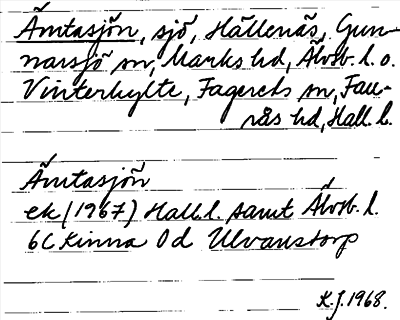 Ämtasjön, sjö, Hällenäs, Gun-
narsjö sn, Marks hd, Älvsb. l. o.
Vinterhylte, Fagereds sn, Fau-
rås hd, Hall. l.
Ämtasjön
ek (1967) Hall. l. samt Älvsb. l.
6C Kinna 0d Ulvanstorp
K.J. 1968.